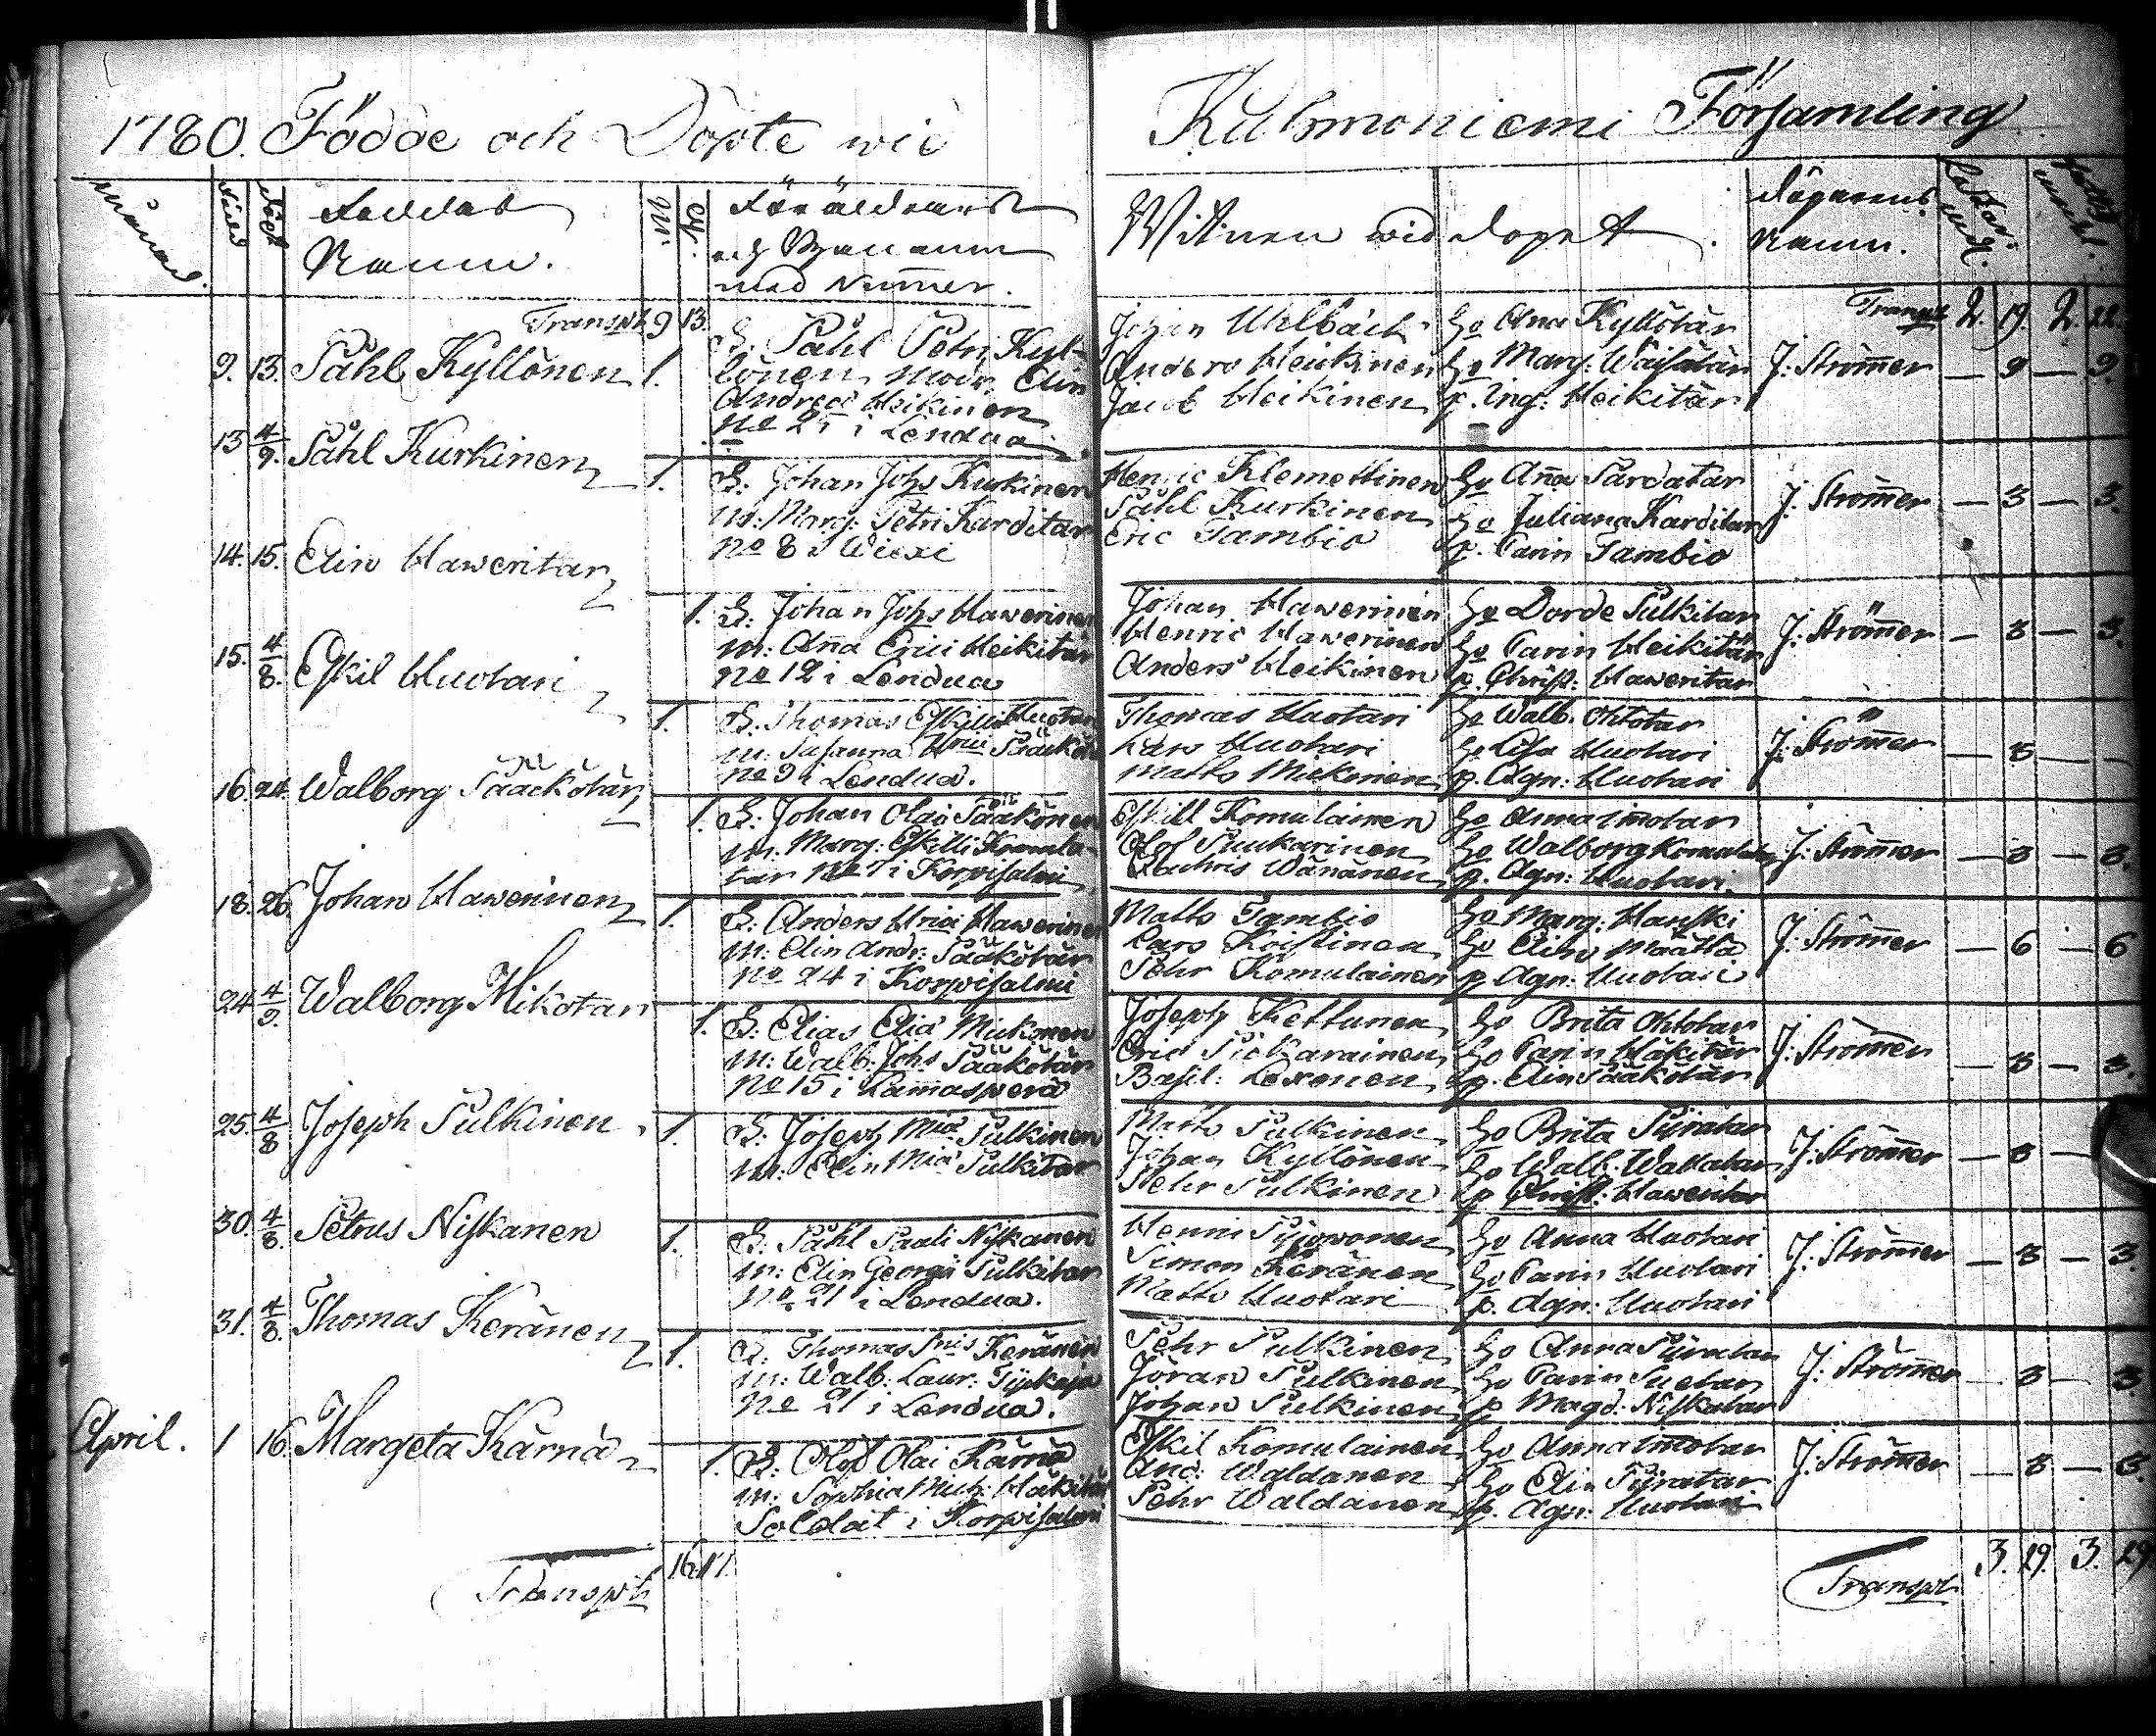 1780. Födde och Döpte wid
Kuhmoniemi Församling
Månad.
Född
Döpt
Föräldrarnes
Namn.
med Numer.
Wittnen wid dopet
Döparens
Namn.
Transpt 9 13.
Transpt 2. 19. 2. 22.
9. 13. Påhl Kyllönen 1.
B. Påhl Petri Kyl-
lönen Modr. Elin
Andreæ Heikinen
No 25 i Lendua
Johan Uhlbäck
Anders Heikinen
Jacob Heikinen
Ho Ana Kyllötär
Ho Marg: Wäisätär
p. Ing: Heikitär
J: Strömer — 9 — 9.
13 4/9. Påhl Kurkinen 1.
B: Johan Johs Kurkinen
M: Marg: Petri Karditar
No 8 i Wiexi
Henric Klemettinen
Påhl Kurkinen
Eric Tambio
Ho Ana Pardatar
Ho Juliana Karditar
p. Carin Tambio
J: Strömer — 3 — 3.
14. 15. Elin Haweritar 1.
B: Johan Johs Hawerinen
M: Ana Erici Heikitär
No 12 i Lendua
Johan Hawerinen
Henric Hawerinen
Anders Heikinen
Ho Dorde Pulkitar
Ho Carin Heikitär
p. Christ: Haweritar
J: Strömer — 3 — 3.
15. 4/8. Eskil Huotari 1.
B: Thomas Eskilli Huotari
M: Susanna
No 9 i Lendua.
Thomas Huotari
Lars Huotari
Matts Mickinen
Ho Walb. Ohtotar
Ho Lisa Huotari
p. Agn: Huotari
J: Strömer — 3 — —
16. 24. Walborg Pääkötär 1.
B: Johan Olai Pääkönen
M: Marg: Eskilli Komula-
tar No 7 i Korpisalmi
Eskill Komulainen
Olof Puukarinen
Zachris Wänänen
Ho Anna Imotar
Ho Walborg Komulatar
p. Agn: Huotari.
J: Strömer — 3 — 3.
18. 26 Johan Hawerinen 1.
B: Anders Hawerinen
M: Elin Andr: Pääkötär
No 24 i Korpisalmi
Matts Tambio
Lars Koistinen
Pehr Komulainen
Ho Marg: Hanski
Ho Elin Määttä
p. Agn: Huotari
J: Strömer — 6 — 6
24 4/9. Walborg Mikotar 1.
B: Elias Eliæ Mickonen
M: Walb: Johs Pääkötär
No 15 i Lamasperä
Joseph Kettunen
Eric Pickarainen
Basil: Lexonen
Ho Brita Ohtotar
Ho Carin Häkitär
p. Elin Pääkötär
J: Strömer — 3 — 3.
25. 4/8 Joseph Pulkinen 1.
B: Joseph Mic Pulkinen
M: Elin Mic Pulkitar
Matts Pulkinen
Johan Kyllönen
Pehr Pulkinen
Ho Brita Pijratar
Ho Walb. Wallatar
p Christ: Haweritar
J: Strömer — 3 —
30. 4/8. Petrus Niskanen 1.
B: Påhl Pauli Niskanen
M: Elin Georgii Pulkitar
No 21 i Lendua.
Simon Keränen
Matts Huotari
Ho Anna Huotari
Ho Carin Huotari
p. Agn: Huotari
J: Strömer — 3 — 3.
31. 4/8. Thomas Keränen 1.
B: Thomas Keränen
M: Walb: Laur:
No 21 i Lendua.
Pehr Pulkinen
Jöran Pulkinen
Johan Pulkinen
Ho Anna Pijratar
Ho Carin
p Magd: Niskatar
J: Strömer — 3 — 3.
April. 1 16. Margeta Kärnä 1.
B: Olof Olai Kärnä
M: Sophia Mich: Häkitär
Soldat i Korpisalmi
Eskil Komulainen
And: Waldanen
Pehr Waldanen
Ho Anna Imotar
Ho Elin Pijratar
p. Agn: Huotari
J: Strömer — 3 — 3.
Transpt 16 17.
Transpt 3. 29. 3. 29